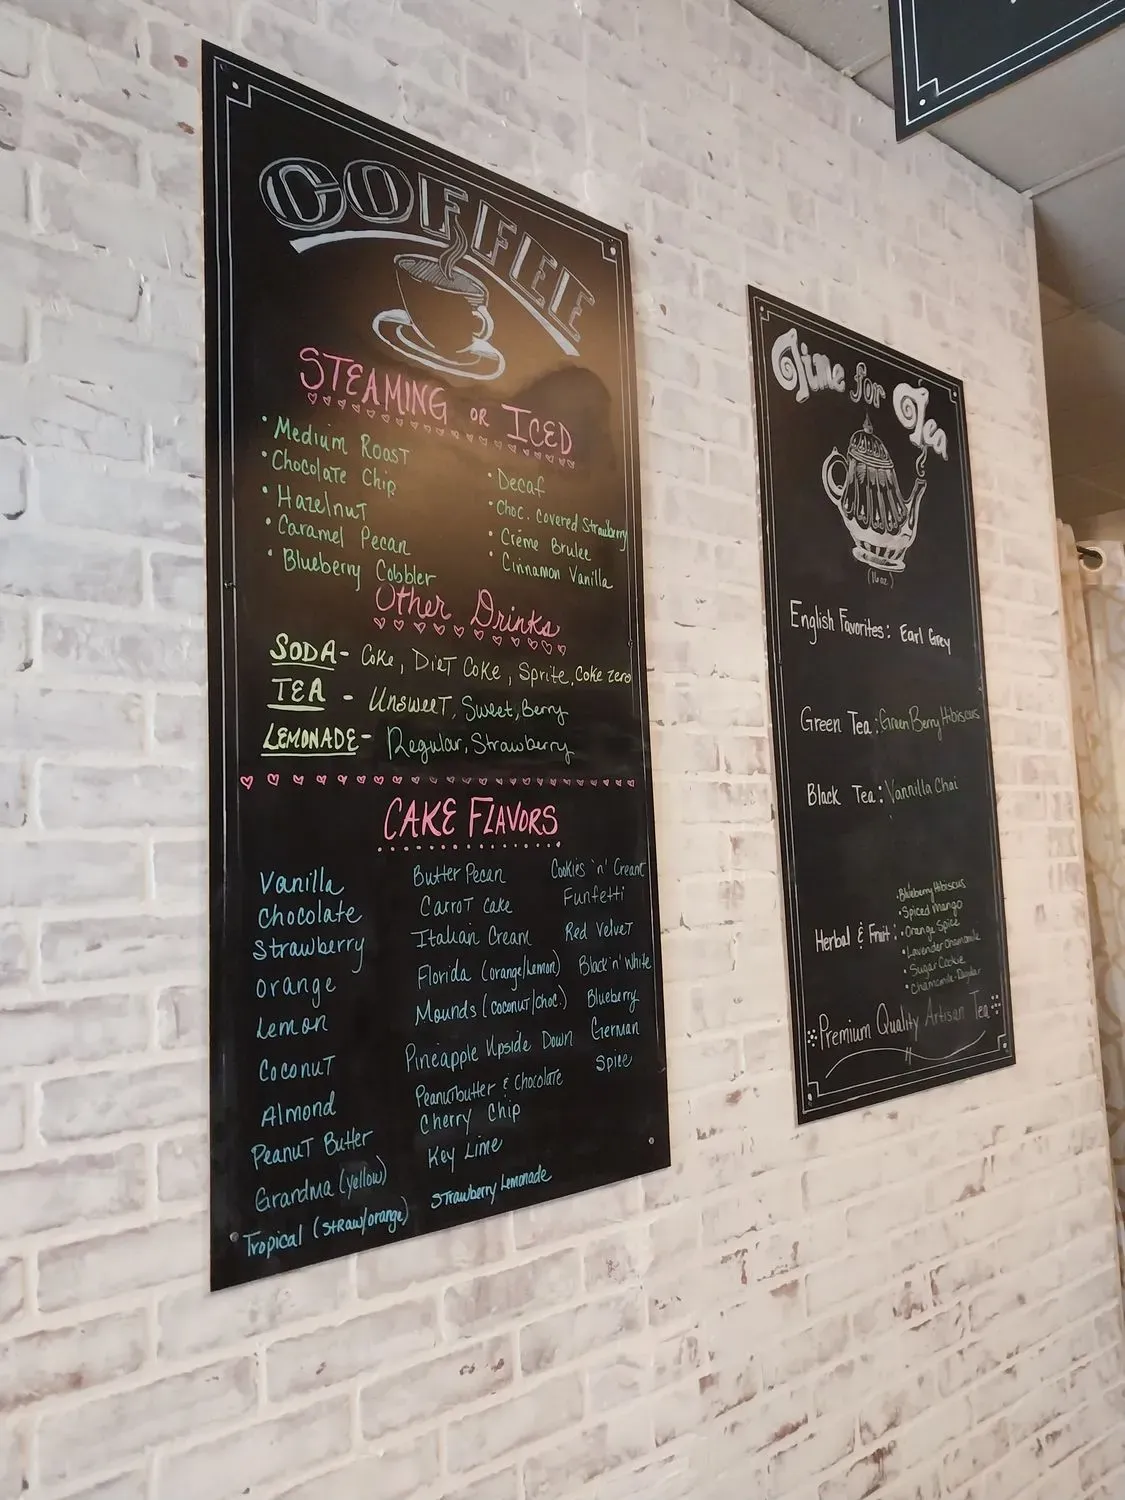 COFFEE
STEAMING OR ICED
• Medium Roast
• Chocolate Chip
• Hazelnut
• Caramel Pecan
• Blueberry Cobbler
• Decaf
• Choc. Covered Strawberry
• Créme Brulee
• Cinnamon Vanilla
Other Drinks
SODA - Coke, Diet Coke, Sprite, Coke zero
TEA - Unsweet, Sweet, Berry
LEMONADE - Regular, Strawberry
CAKE FLAVORS
Vanilla
Chocolate
Strawberry
Orange
Lemon
Coconut
Almond
Peanut Butter
Grandma (yellow)
Tropical (straw/orange)
Butter Pecan
Carrot Cake
Italian Cream
Florida (orange/lemon)
Mounds (coconut/choc.)
Pineapple Upside Down
Peanutbutter & Chocolate
Cherry Chip
Key Lime
Strawberry Lemonade
Cookies 'n' Cream
Funfetti
Red Velvet
Black 'n' White
Blueberry
German
Spice
Time for Tea
(16 oz)
English Favorites: Earl Grey
Green Tea: Green Berry Hibiscus
Black Tea: Vannilla Chai
Herbal & Fruit:
• Blueberry Hibiscus
• Spiced Mango
• Orange Spice
• Lavender Chamomile
• Sugar Cookie
Premium Quality Artisan Tea